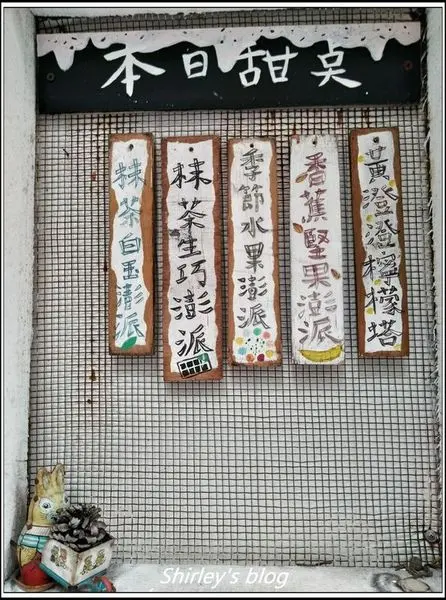 本日甜点
抹茶白玉澎派
抹茶生巧澎派
季節水果澎派
香蕉堅果澎派
黃澄澄檸檬塔
Shirley's blog